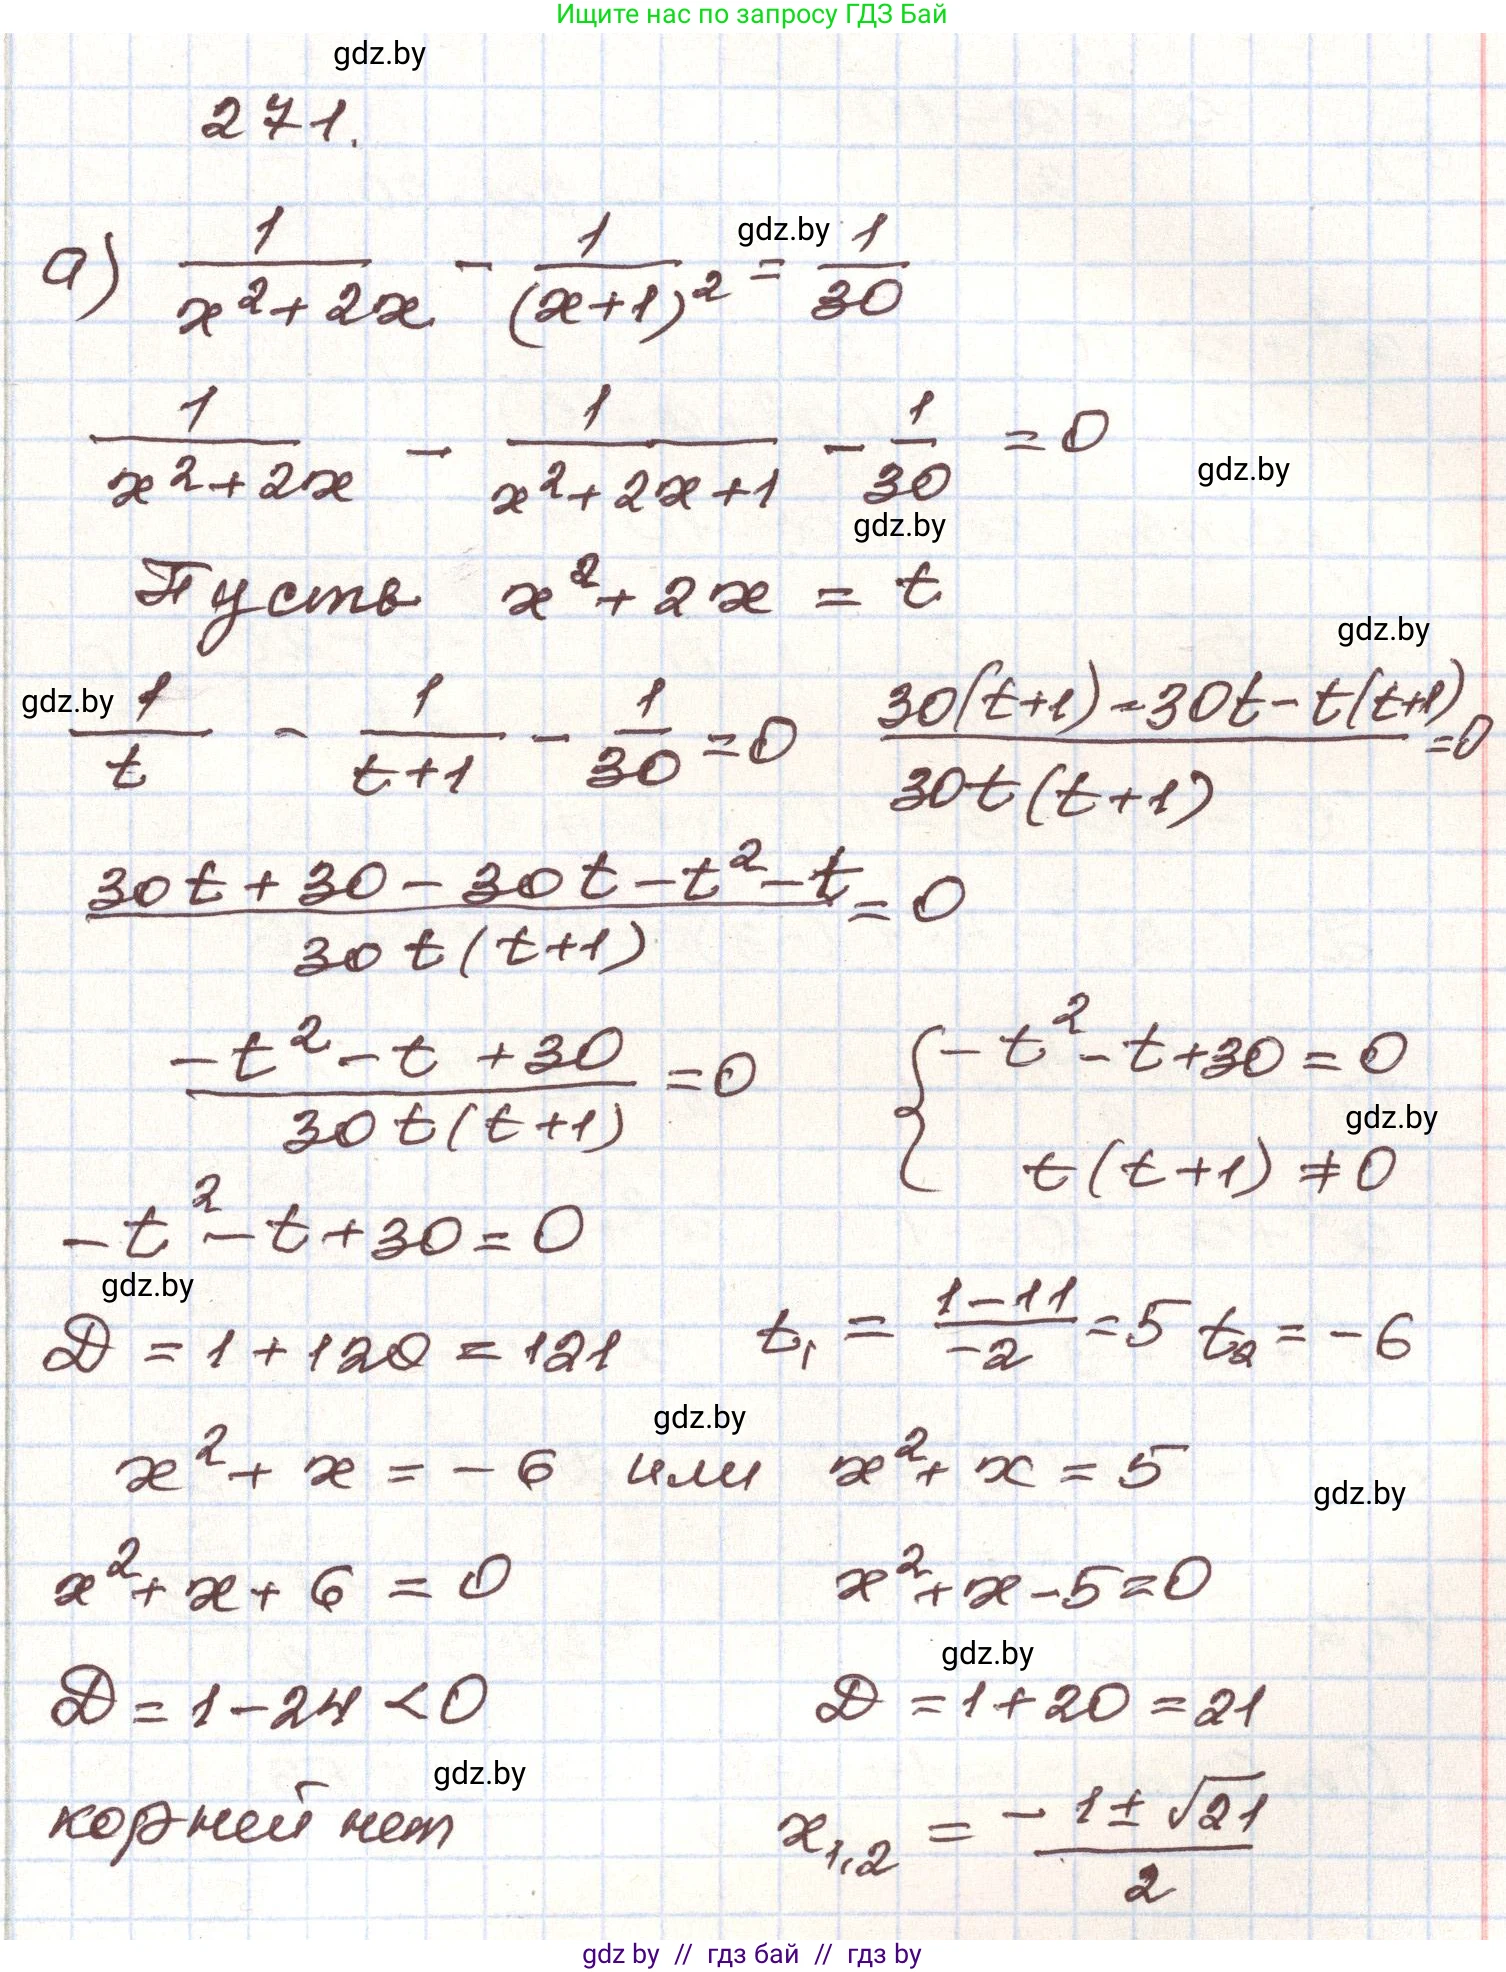 Ищите нас по запросу ГДЗ Бай
gdz.by
271.
gdz.by
а) 1/(x²+2x) - 1/(x+1)² = 1/30
1/(x²+2x) - 1/(x²+2x+1) - 1/30 = 0
gdz.by
gdz.by
Пусть x²+2x = t
gdz.by
gdz.by
1/t - 1/(t+1) - 1/30 = 0 (30(t+1)-30t-t(t+1))/(30t(t+1)) = 0
(30t+30-30t-t²-t)/(30t(t+1)) = 0
(-t²-t+30)/(30t(t+1)) = 0 { -t²-t+30=0
gdz.by
t(t+1)≠0
-t²-t+30=0
gdz.by
D = 1+120 = 121 t₁ = (1-11)/(-2) = 5 t₂ = -6
gdz.by
x²+x = -6 или x²+x = 5
gdz.by
x²+x+6 = 0 x²+x-5=0
gdz.by
D = 1-24 < 0 D = 1+20 = 21
gdz.by
корней нет x₁,₂ = (-1±√21)/2
gdz by // гдз бай // гдз by